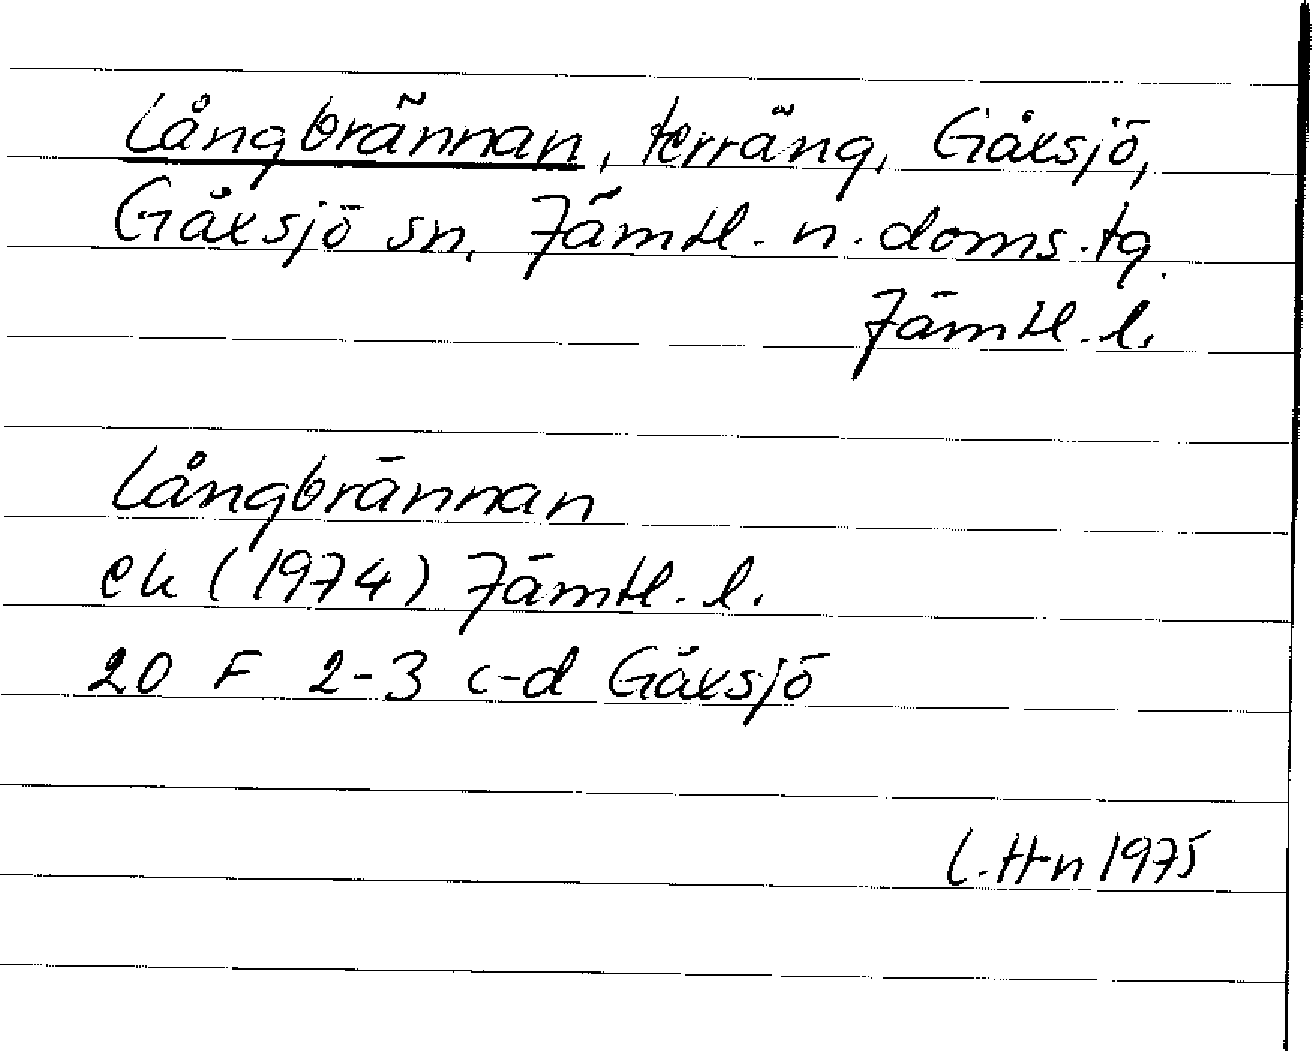 Långbrännan, terräng, Gåxsjö,
Gåxsjö sn, Jämtl. n. doms. tg.
Jämtl. l.
Långbrännan
ek (1974) Jämtl. l.
20 F 2-3 c-d Gåxsjö
L. H-n 1975